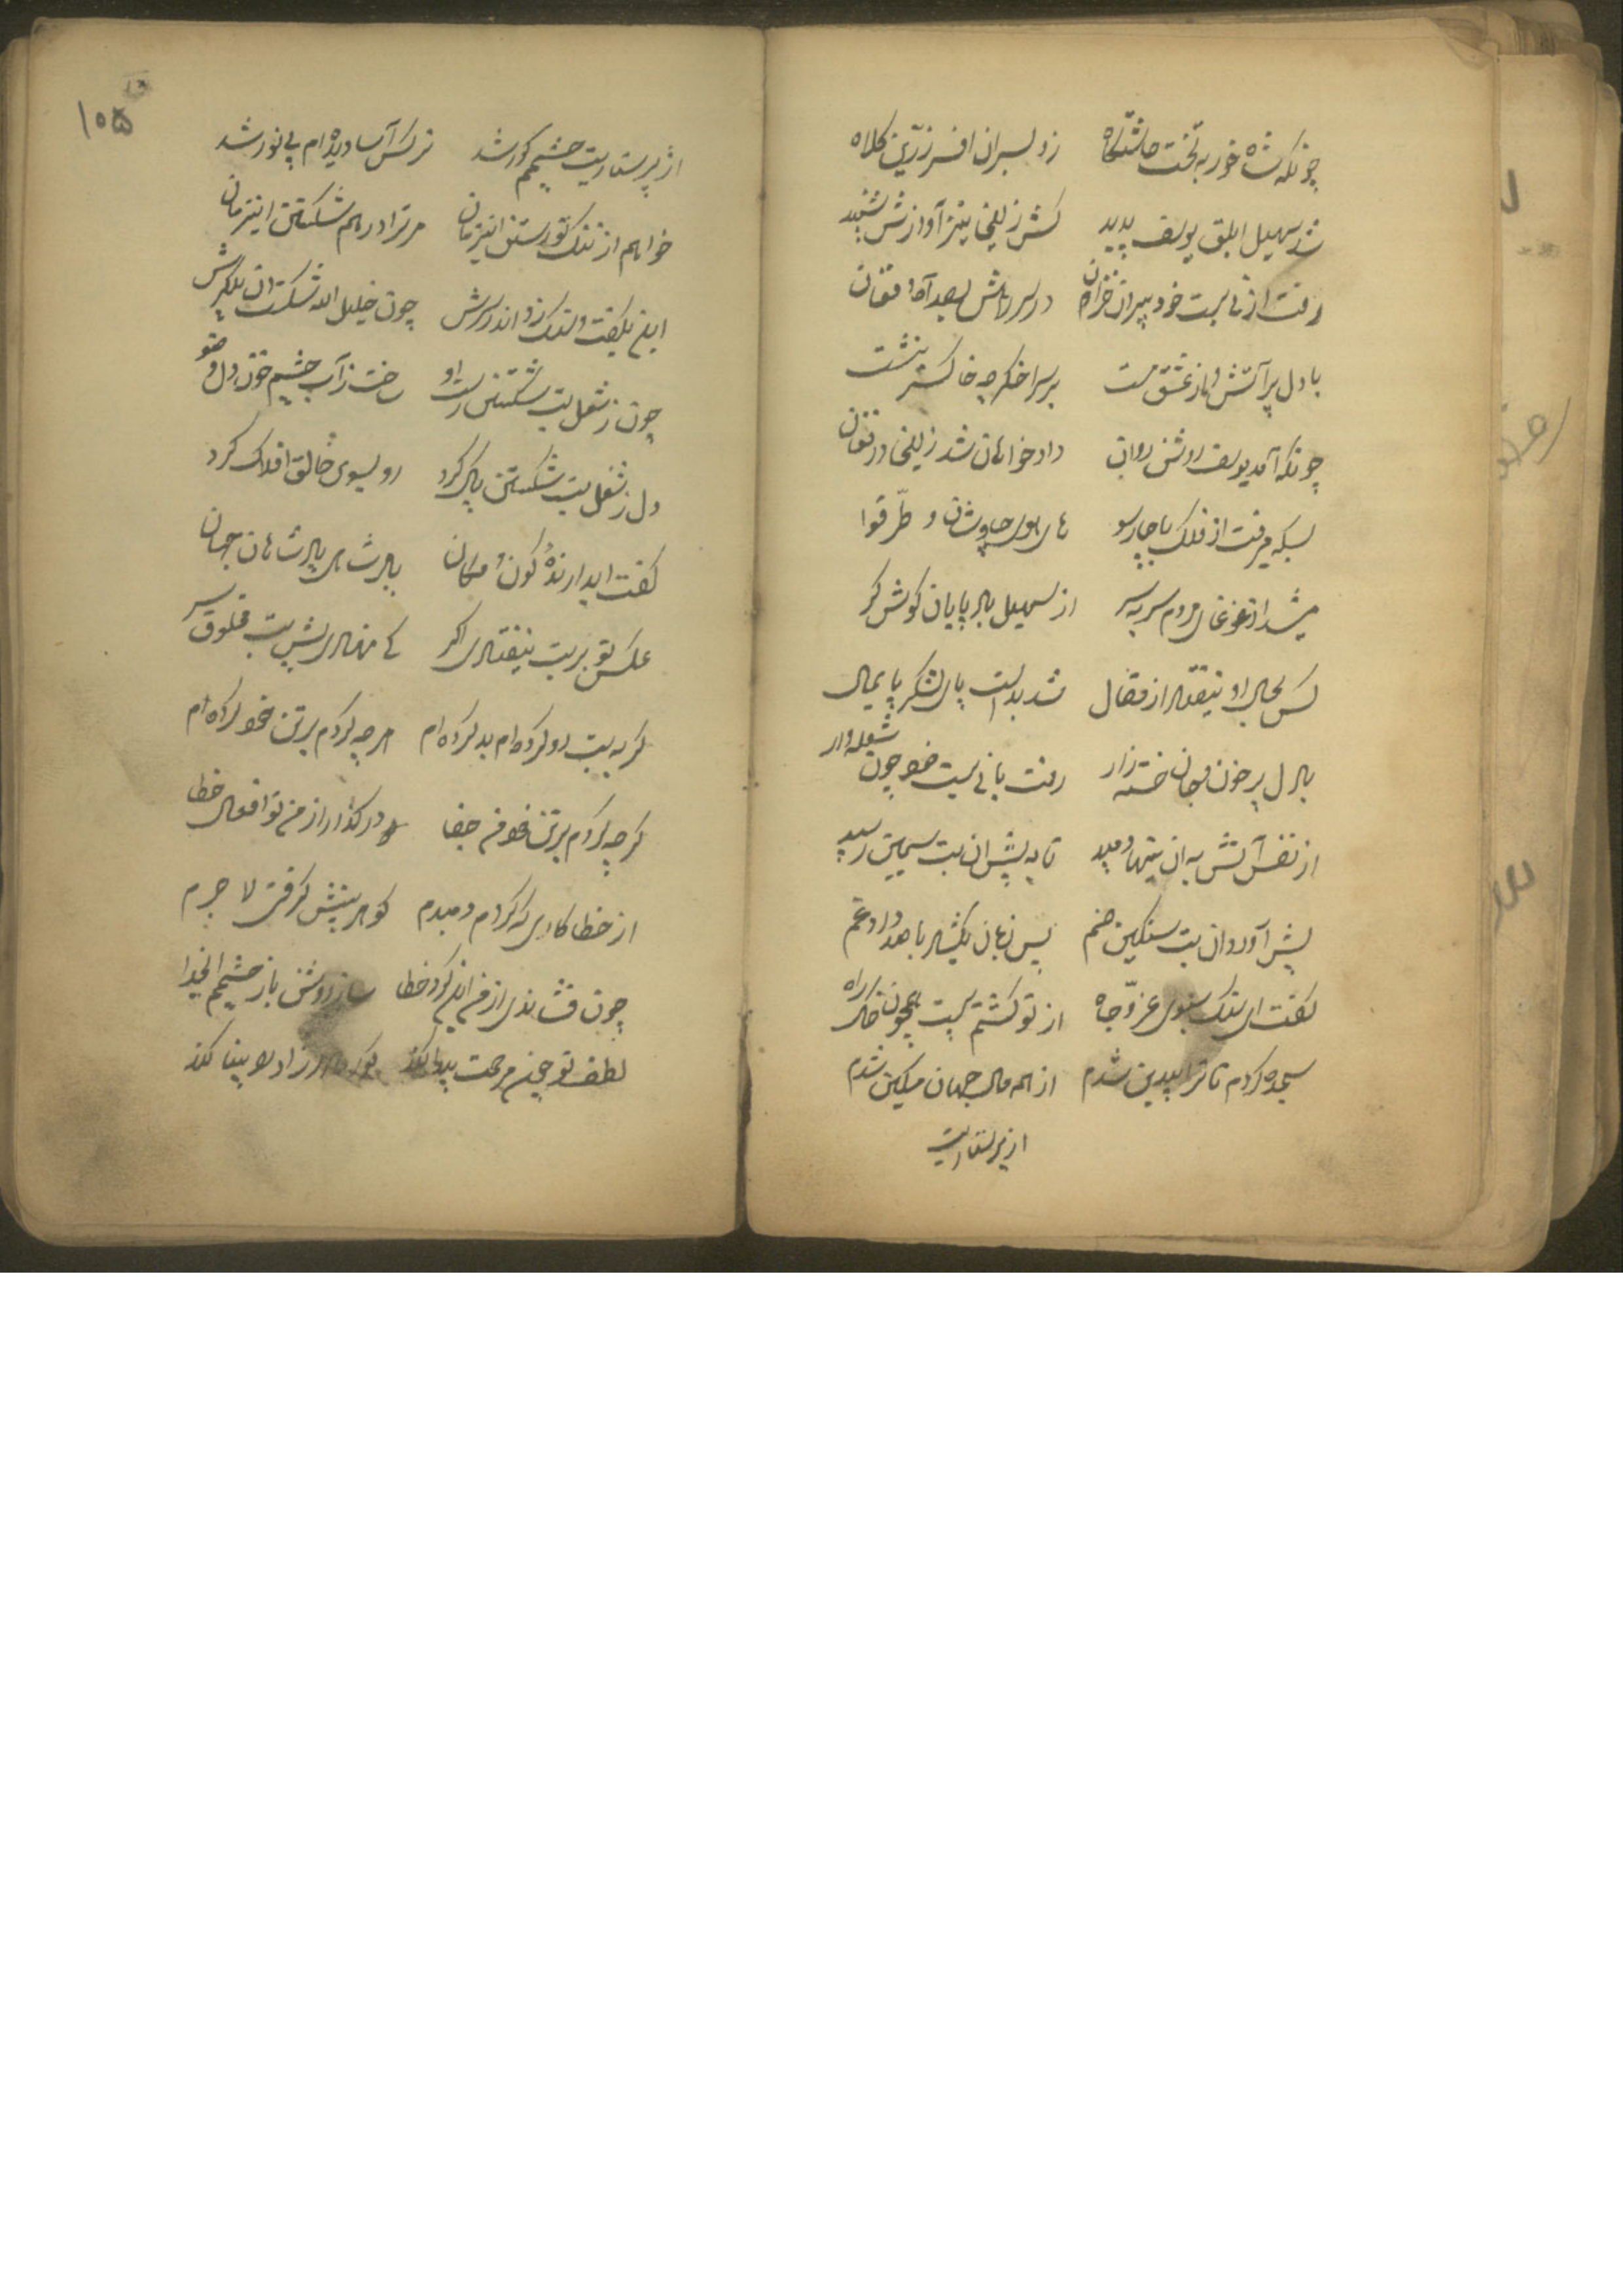 چونکه شاه خور به تخت چاشتگاه زد بسر ان افسر زرین کلاه
شد سهیل ابلق یوسف پدید کش زلیخی نیز آوازش شنید
رفت از نی بست خود بیرون خزان در سر راهش بصد آه و فغان
با دل پر آتش و از عشق مست بر سر اخکر چه خاکستر نشست
چونکه آمد یوسف روشن روان داد خواهان شد زلیخی در فغان
بسکه میرفت از فلک با چارسو های هوی چاوشان و طرقوا
میشد از غوغای مردم سر به سر از سهیل باد پایان کوش کر
کس بحال او نیفتاد از فقال شد بدست پای لشکر پایمال
با دل پر خون و جان خسته زار رفت با نی بست خود چون شعله وار
از نفس آتش به آن نیها دمید تا به پیش ان بت سیمین رسید
پیش آورد ان بت سنکین صنم پس زبان بکشاد با صد داد و غم
کفت ای سنک سبوی عز و جاه از تو کشتم پست همچون خاک راه
سجده کردم تا ترا بیدین شدم از همه مال جهان مسکین شدم
از پرستاریت
۱۰۵
از پرستاریت چشمم کور شد نرکس آسا دیده ام بی نور شد
خواهم از ننک تو رستن اینزمان مر ترا درهم شکستن اینزمان
این بکفت و سنک زد اندر سرش چون خلیل الله شکست ان پیکرش
چون ز شغل بت شکستن رست او ساخت ز آب چشم و خون دل وضو
دل ز شغل بت شکستن پاک کرد رو بسوی خالق افلاک کرد
کفت ای دارنده کون و مکان پادشاهی پادشاهان جهان
عکس تو بر بت نیفتادی اکر کی نهادی پیش بت مخلوق سر
کر به بت رو کرده ام بد کرده ام هر چه کردم بر تن خود کرده ام
کر چه کردم بر تن خود من جفا در کذار از من تو افعال خطا
از خطا کاری که کردم دمبدم کوهر بینش کرفتی لا جرم
چون فشاندی از من این کرد خطا ساز روشن باز چشمم ای خدا
لطف تو چون مرحمت پیدا کند کور مادرزاد را بینا کند